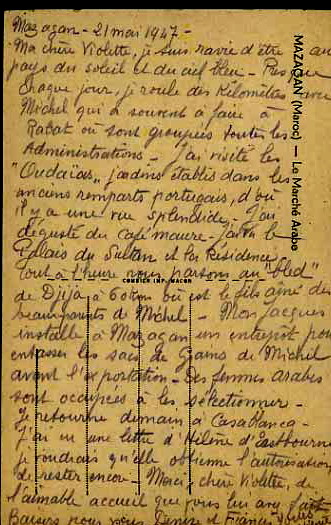 Mazagan - 21 mai 1947 -
Ma chère Violette, je suis ravie d'être au
pays du soleil et du ciel bleu - Presque
chaque jour, je roule des kilomètres avec
Michel qui a souvent à faire à
Rabat où sont groupées toutes les
Administrations - J'ai visité les
"Oudaïas" jardins établis dans les
anciens remparts portugais, d'où
il y a une vue splendide - J'ai
dégusté du café maure - J'ai vu le
Palais du Sultan et la Résidence
Tout à l'heure nous partons au "bled"
de Djija à 60 km où est le fils aîné des
beaux-parents de Michel - Mon Jacques
installe à Mazagan un entrepôt pour
entasser les sacs de grains de Michel
avant l'exportation - Des femmes arabes
sont occupées à les sélectionner -
Je retourne demain à Casablanca -
J'ai eu une lettre d'Hélène d'Eastbourne
je voudrais qu'elle obtienne l'autorisation
de rester encore - Merci, chère Violette, de
l'aimable accueil que vous lui avez fait
Baisers pour vous, Denise et
MAZAGAN (Maroc) — Le Marché Arabe
COMBIER IMP. MACON